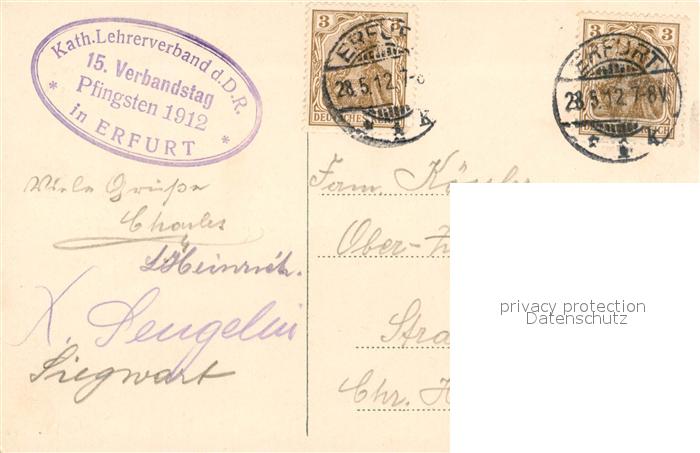 Kath. Lehrerverband d. D. R.
15. Verbandstag
Pfingsten 1912
* in ERFURT *
3 3
DEUTSCHES REICH
ERFURT
28.5.12.7-8V.
* * k
3 3
ERFURT
28.5.12.7-8V.
* * k
Viele Grüße
Charles
Heinrich.
X. Sengelin
Siegwart
Fam.
Ober-
Stra
Chr. H
privacy protection
Datenschutz